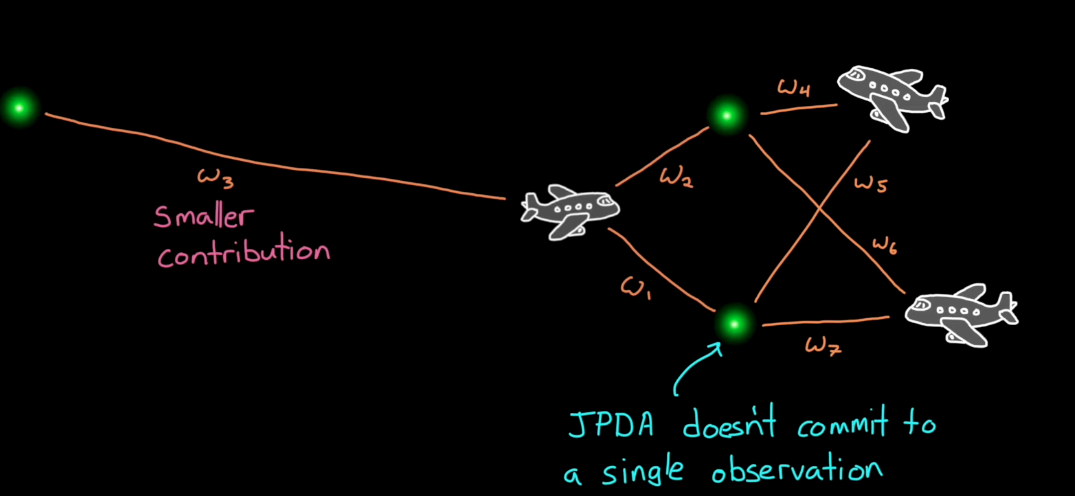 ω4
ω3
Smaller
contribution
ω2
ω5
ω6
ω1
ω7
JPDA doesn't commit to
a single observation